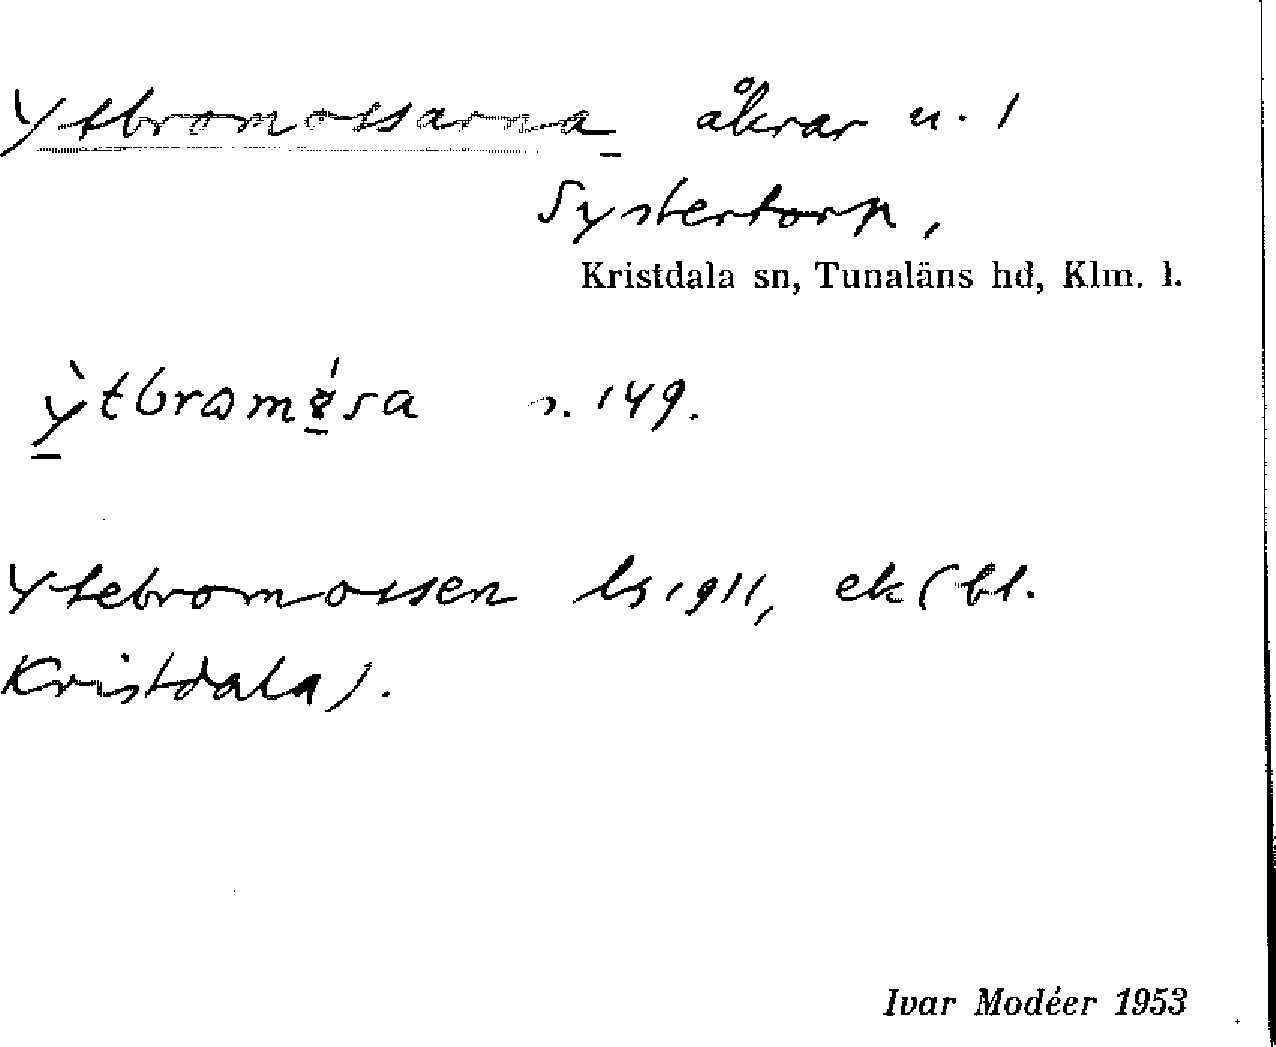 Ytbromossarna åkrar u. 1
Systertorp,
Kristdala sn, Tunaläns hd, Klm. l.
s. 149.
Ytebromossen ls 1911, ek (bl.
Kristdala).
Ivar Modéer 1953